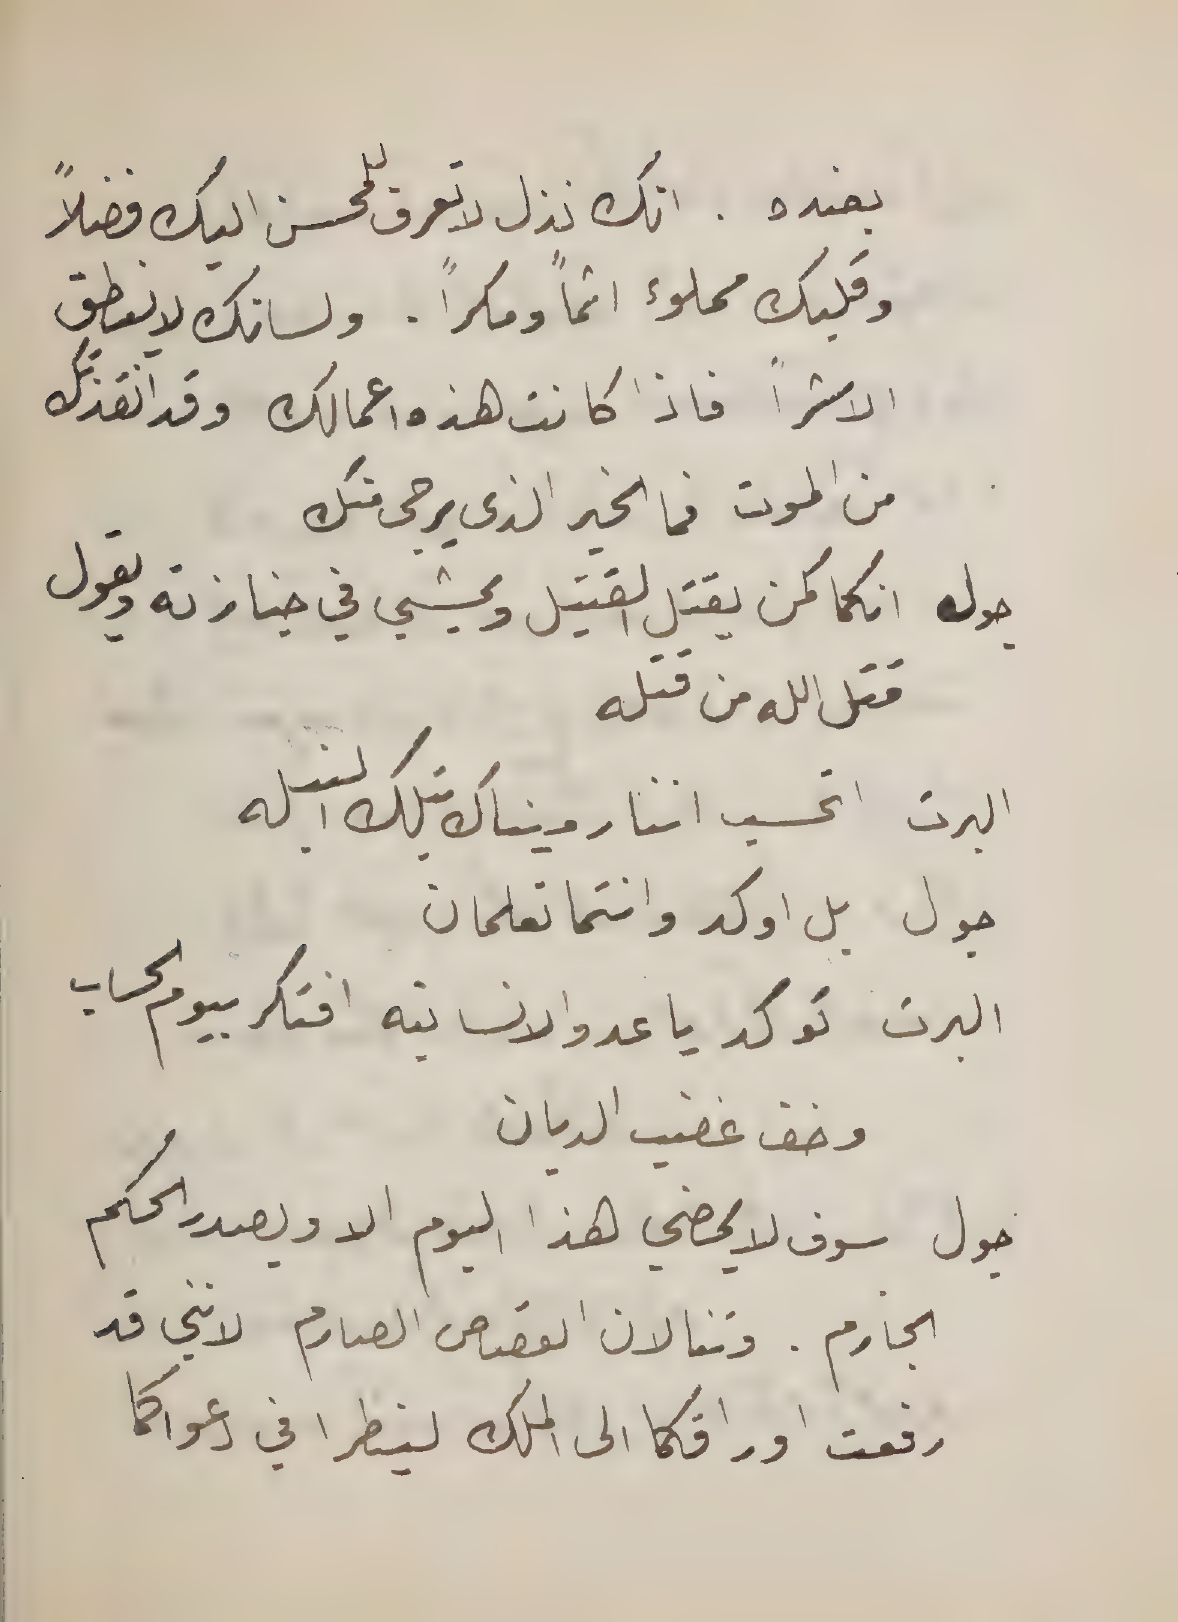 بضده . انك نذل لا تعرف للمحسن اليك فضلاً
وقلبك مملوء اثماً ومكراً . ولسانك لا ينطق
الا شراً فاذا كانت هذه اعمالك وقد انقذتك
من الموت فما الخير الذي يرجى منك
جول انكما كمن يقتل القتيل ويمشي في جنازته ويقول
قتل الله من قتله
البرت اتحسب اننا رميناك بتلك
جول بل اوكد وانتما تعلمان
البرت توكد يا عدو الانسانيه افتكر بيوم الحساب
وخف غضب الديان
جول سوف لا يمضي هذا اليوم الا ويصدر الحكم
الجازم . وتنالان القصاص الصارم لانني قد
رفعت اوراقكما الى الملك لينظرا في دعواكما